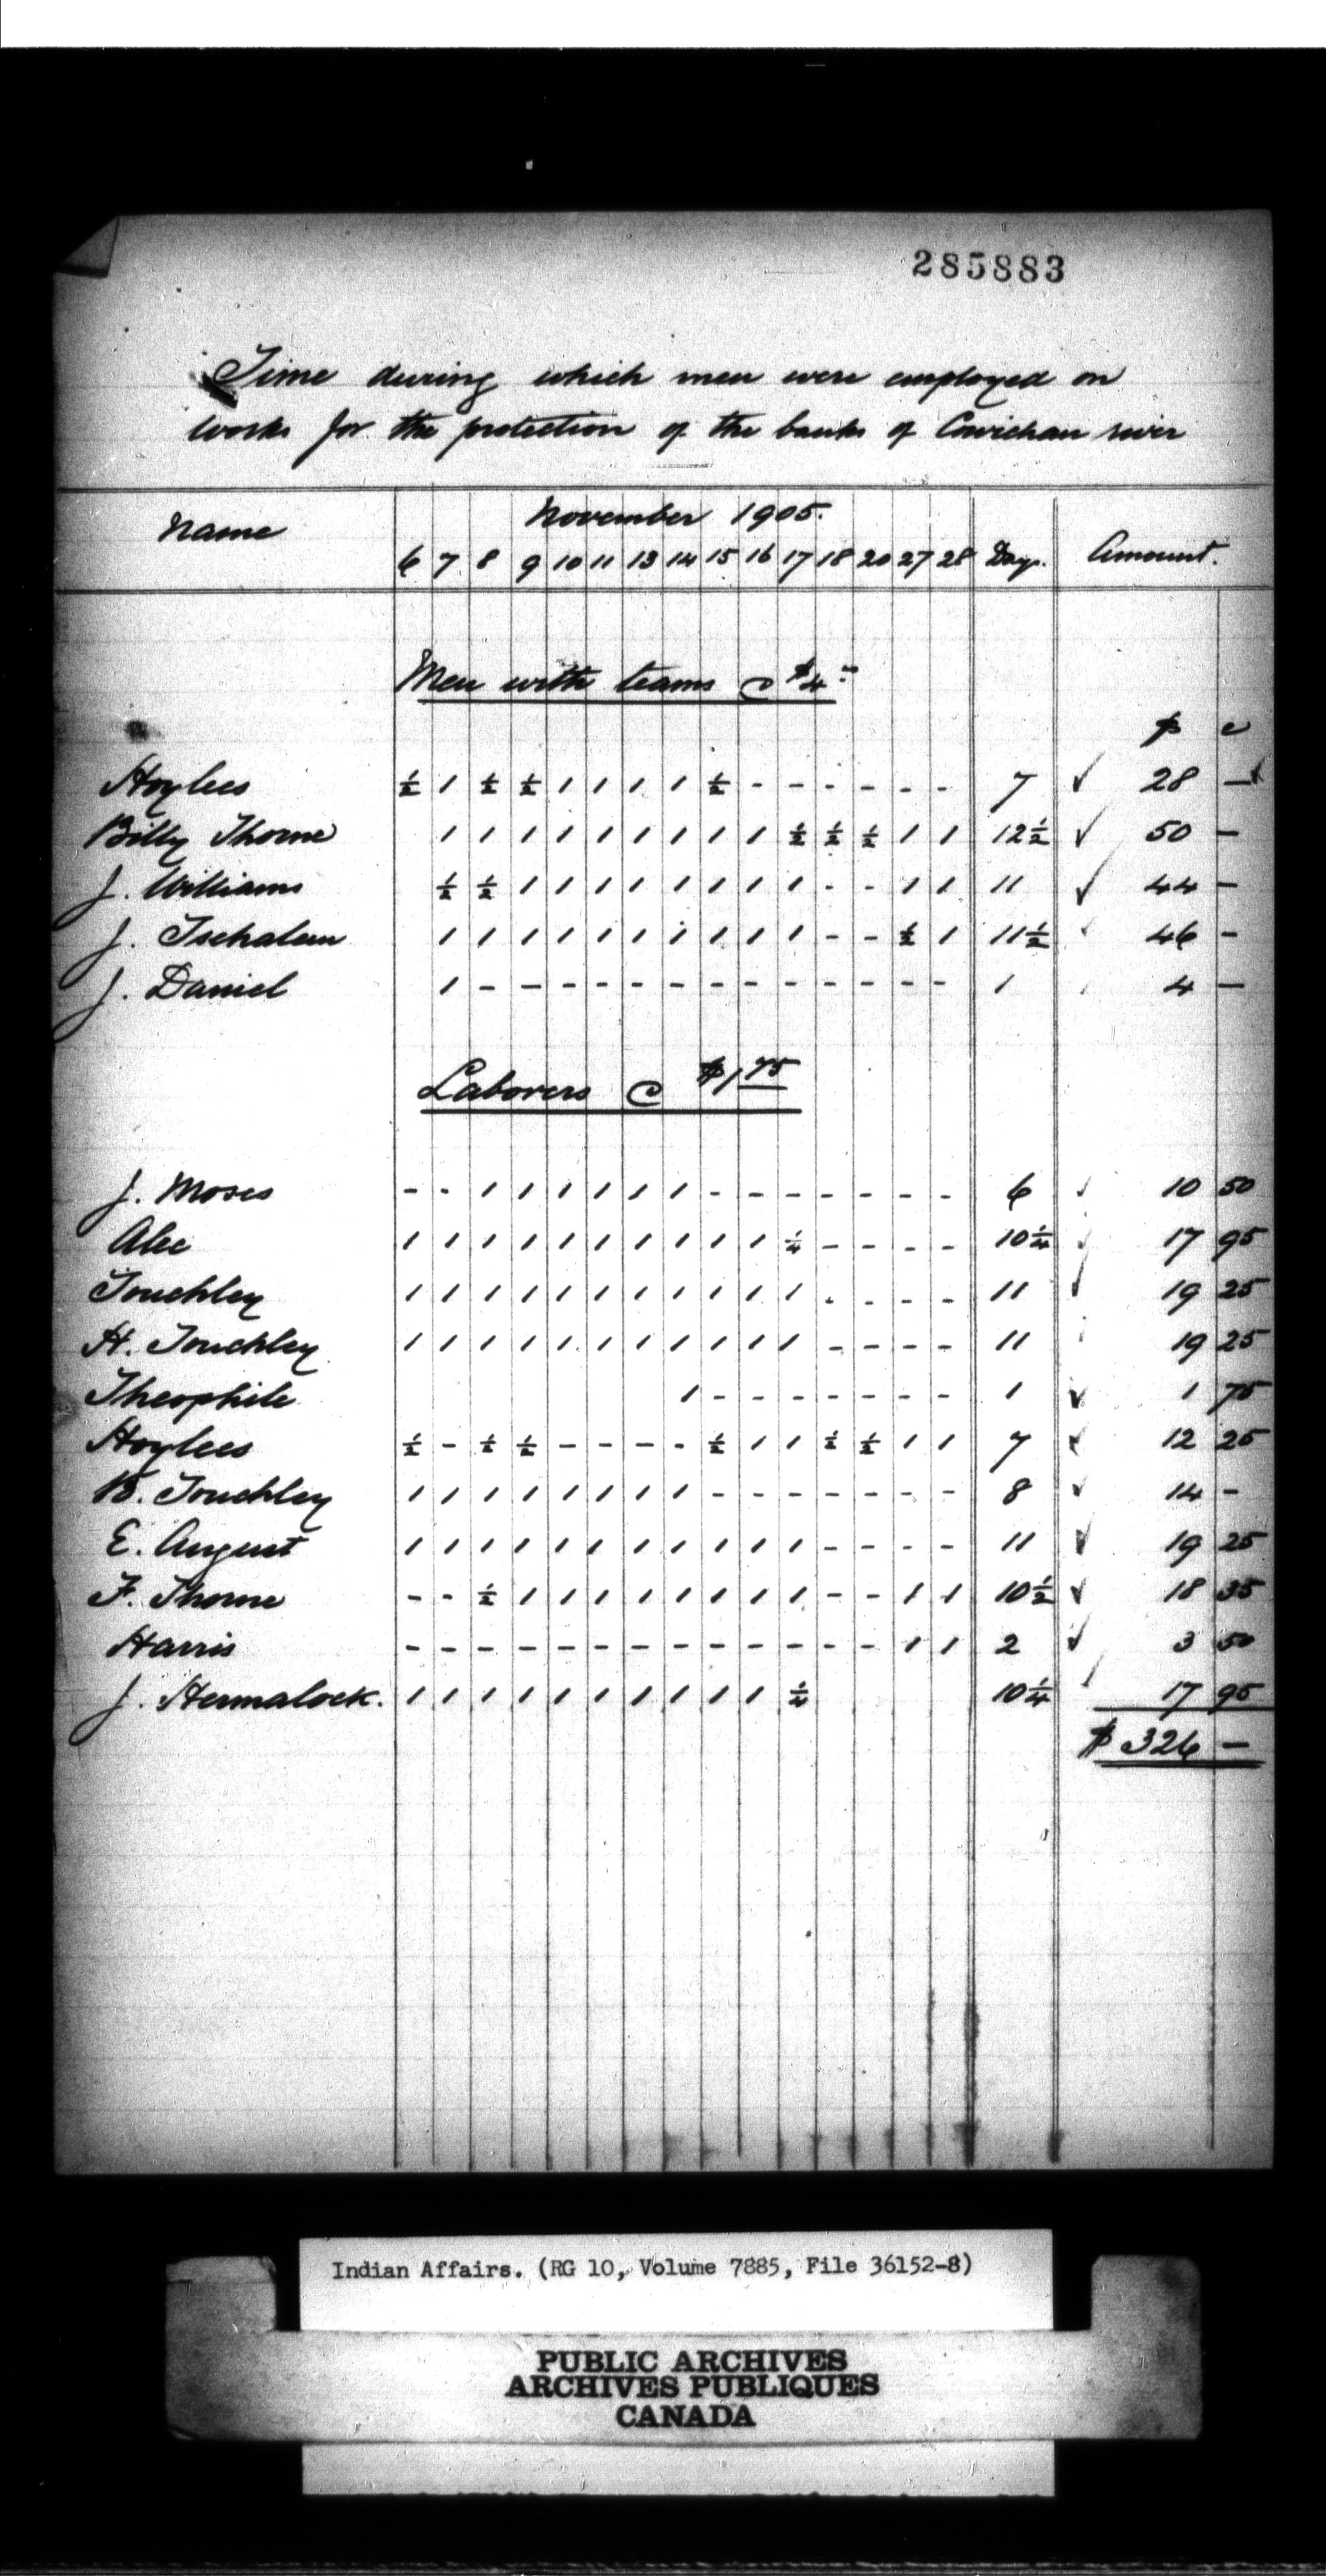 285883
Time during which men were employed on
works for the protection of the banks of Cowichan river
Name November 1905. Days. Amount.
6 7 8 9 10 11 13 14 15 16 17 18 20 27 28
Men with teams @ $4 -
$ c
Hoylees ½ 1 ½ ½ 1 1 1 1 ½ - - - - - - 7 ✓ 28 -
Billy Thorne 1 1 1 1 1 1 1 1 1 ½ ½ ½ 1 1 12½ ✓ 50 -
J. Williams ½ ½ 1 1 1 1 1 1 1 1 - - 1 1 11 ✓ 44 -
J. 1 1 1 1 1 1 1 1 1 1 - - ½ 1 11½ ✓ 46 -
J. Daniel 1 - - - - - - - - - - - - - 1 4 -
Laborers @ $1 75
J. Moses - - 1 1 1 1 1 1 - - - - - - - 6 ✓ 10 50
Alec 1 1 1 1 1 1 1 1 1 1 ¼ - - - - 10¼ ✓ 17 95
Touchley 1 1 1 1 1 1 1 1 1 1 1 - - - - 11 ✓ 19 25
H. Touchley 1 1 1 1 1 1 1 1 1 1 1 - - - - 11 19 25
Theophile 1 - - - - - - - 1 ✓ 1 75
Hoylees ½ - ½ ½ - - - - ½ 1 1 ½ ½ 1 1 7 ✓ 12 25
B. Touchley 1 1 1 1 1 1 1 1 - - - - - - - 8 ✓ 14 -
E. August 1 1 1 1 1 1 1 1 1 1 1 - - - - 11 ✓ 19 25
F. Thorne - - ½ 1 1 1 1 1 1 1 1 - - 1 1 10½ ✓ 18 35
Harris - - - - - - - - - - - - - 1 1 2 ✓ 3 50
J. Hermalock. 1 1 1 1 1 1 1 1 1 1 ¼ 10¼ ✓ 17 95
$ 326 -
Indian Affairs. (RG 10, Volume 7885, File 36152-8)
PUBLIC ARCHIVES
ARCHIVES PUBLIQUES
CANADA